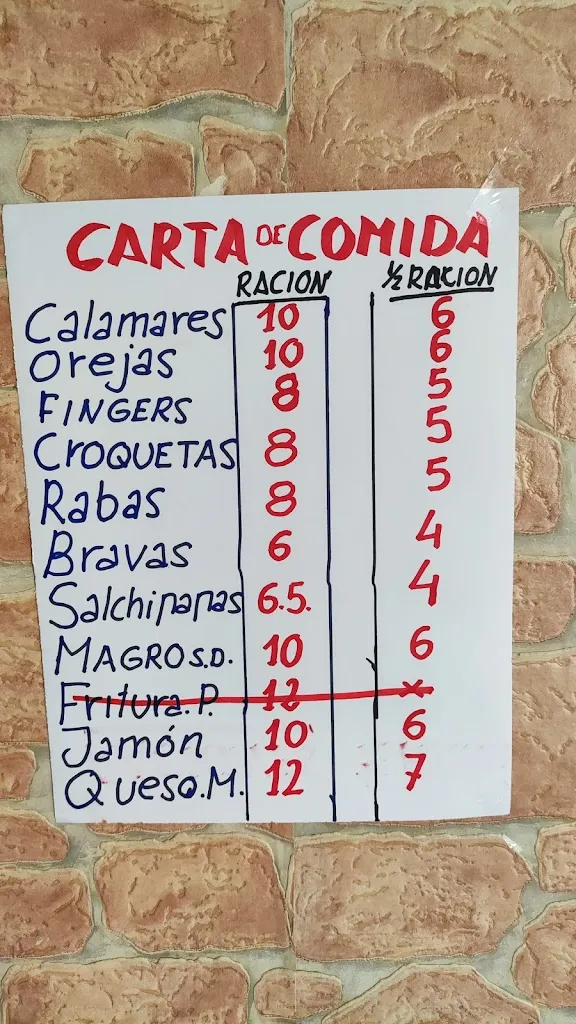 CARTA DE COMIDA
RACION ½ RACION
Calamares 10 6
Orejas 10 6
FINGERS 8 5
CROQUETAS 8 5
Rabas 8 5
Bravas 6 4
Salchipapas 6.5. 4
MAGRO S.D. 10 6
Fritura.P. 12 x
Jamón 10 6
Queso.M. 12 7